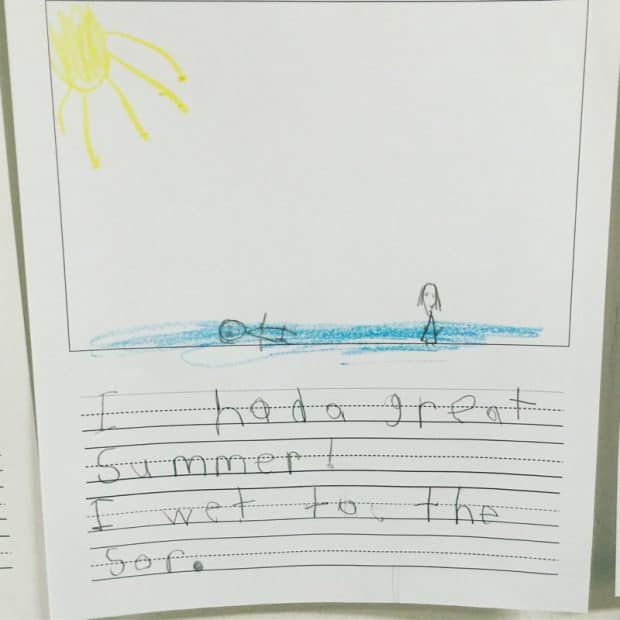 I had a great
Summer!
I wet to the
Sor.